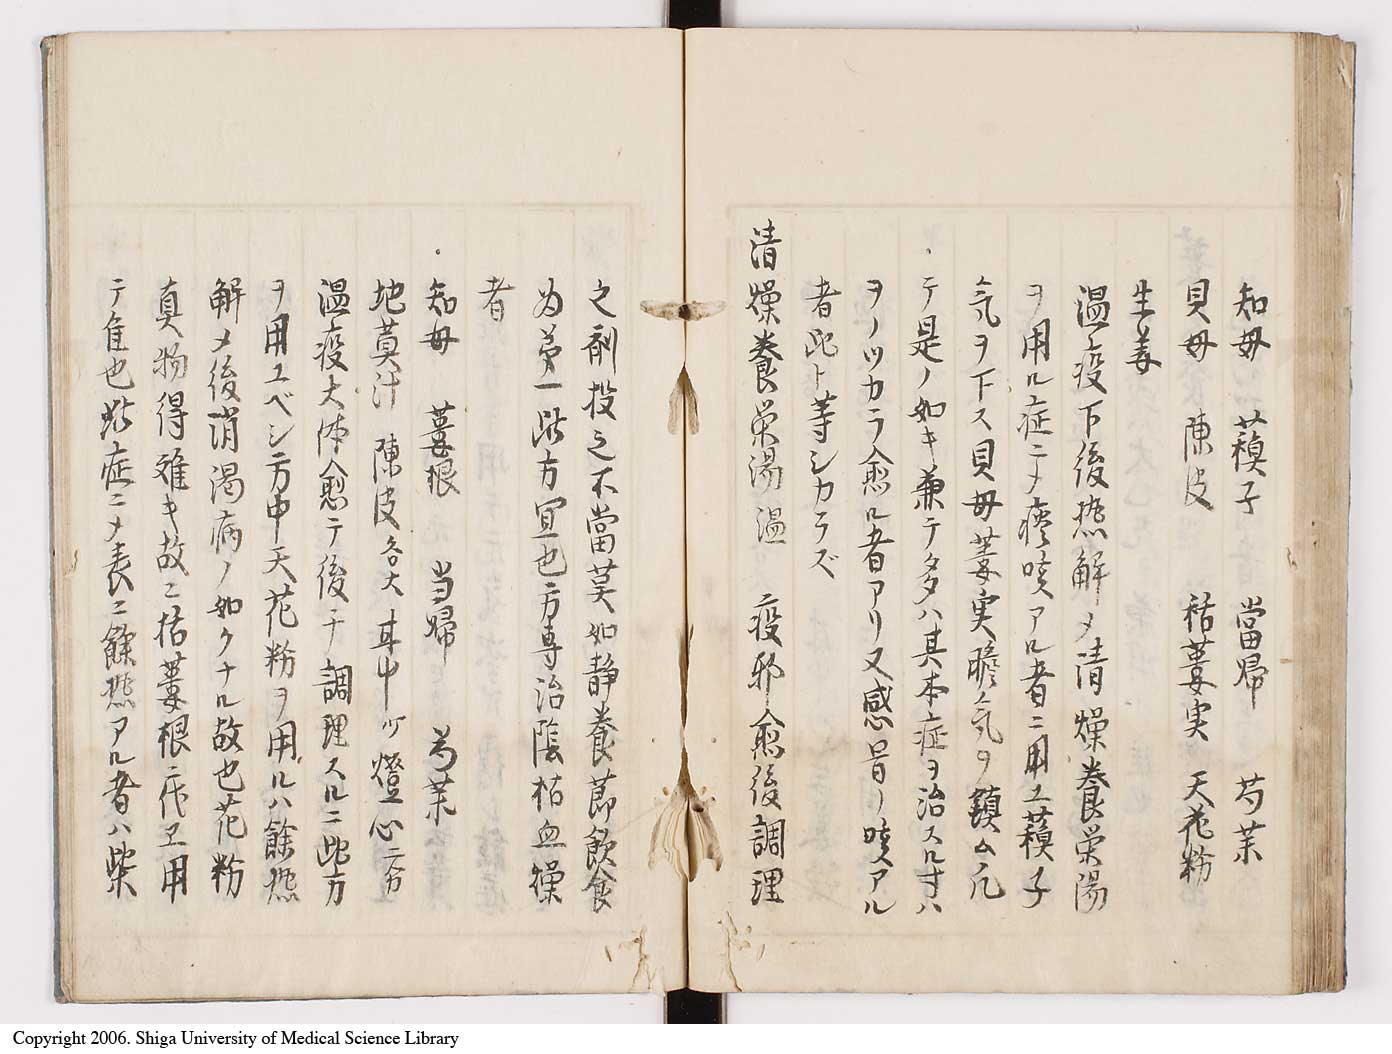 知母　蘓子　當帰　芍藥
貝母　陳皮　栝蔞実　天花粉
生姜
温疫下後熱解〆清燥養栄湯
ヲ用ル症ニ〆痰咳アル者ニ用ユ蘓子
気ヲ下ス貝母蔞実膽気ヲ鎮ム凡
テ是ノ如キ兼テタタハ其本症ヲ治スル寸ハ
ヲノツカラ愈ル者アリ又感冒ノ咳アル
者此ト等シカラズ
清燥養栄湯温　疫邪愈後調理
之剤投之不當莫如静養節飲食
為第一此方宜也方専治陰枯血燥
者
知母　蔞根　当帰　芍薬
地黄汁　陳皮各大　甘中ツ　燈心二分
温疫大体愈テ後チ調理スルニ此方
ヲ用ユベシ方中天花粉ヲ用ルハ餘熱
解〆後消渇病ノ如クナル故也花粉
真物得難キ故ニ括蔞根代ヱ用
テ隹也此症ニ〆表ニ餘熱アル者ハ柴
Copyright 2006. Shiga University of Medical Science Library